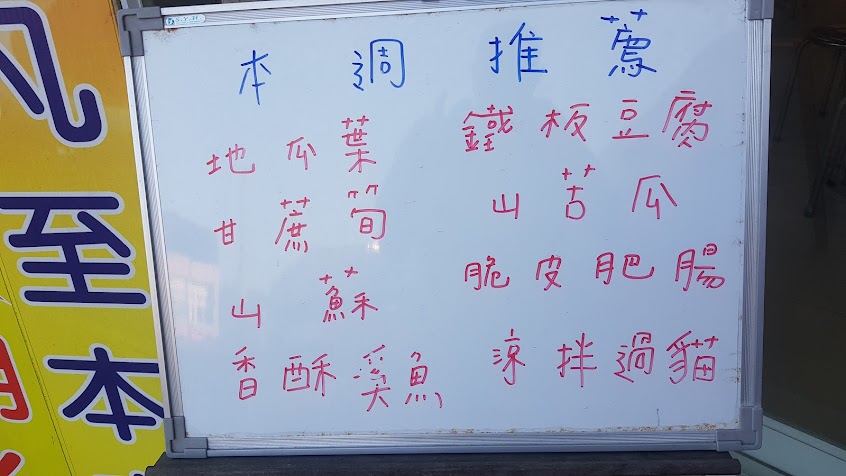 本週推薦
地瓜葉 鐵板豆腐
甘蔗筍 山苦瓜
山蘇 脆皮肥腸
香酥溪魚 涼拌過貓
至
本